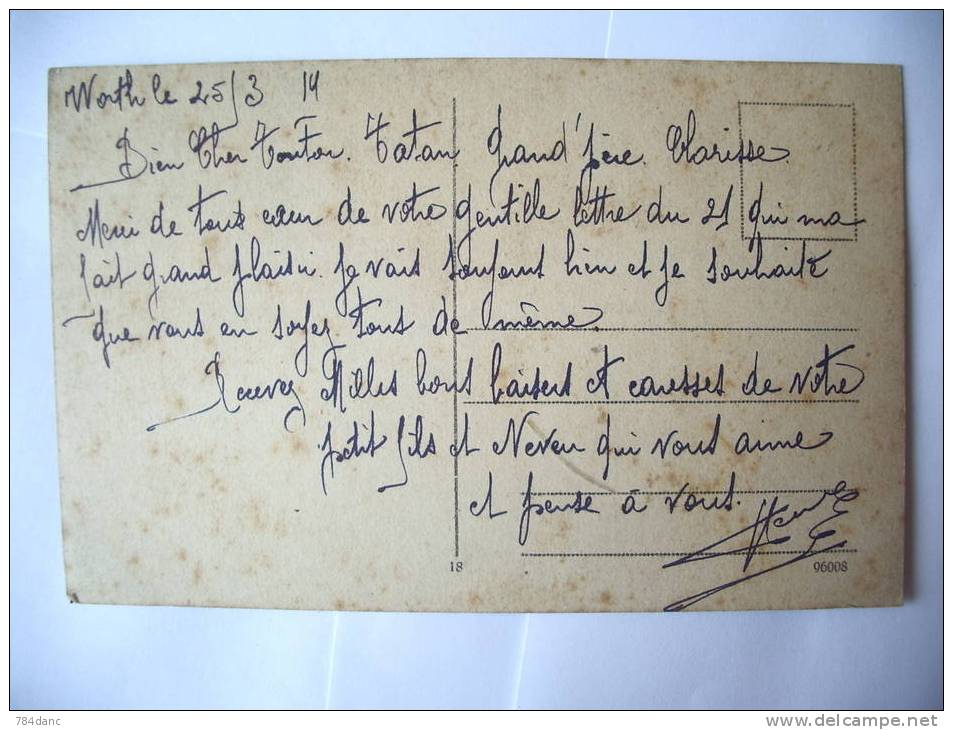 Worth le 25/3 19
Bien Cher Tonton. Tatan Grand'père. Clarisse.
Merci de tous cœur de votre gentille lettre du 21 qui ma
fait grand plaisir. Je vais toujours bien et je souhaite
que vous en soyez tous de même.
Recevez Milles bons baisers et caresses de votre
petit fils et Neveu qui vous aime
et pense à vous.
18
96008
784danc
www.delcampe.net